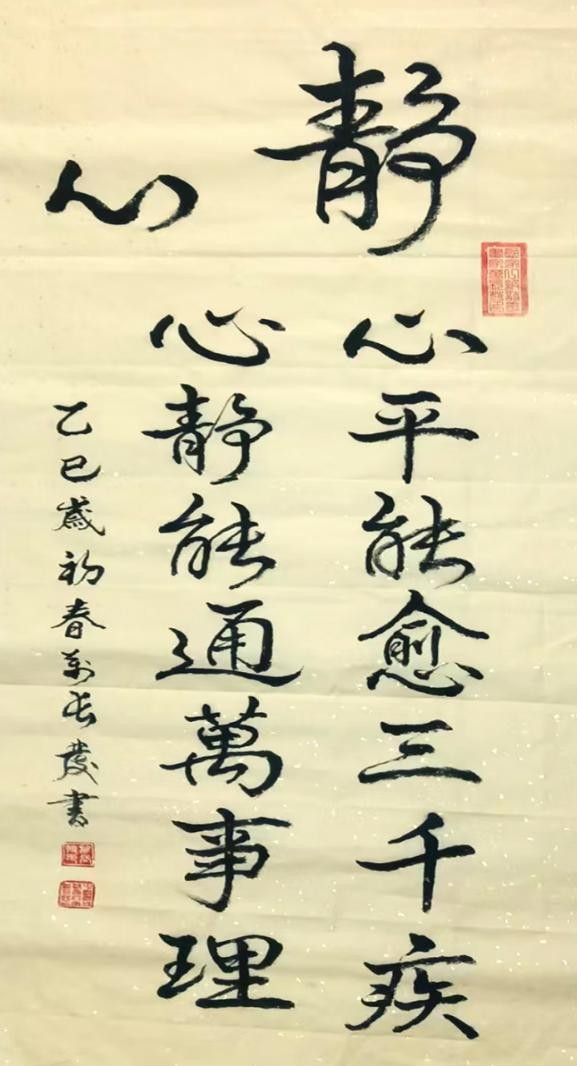 静心
心平能愈三千疾
心静能通萬事理
乙巳歲初春萬長發書